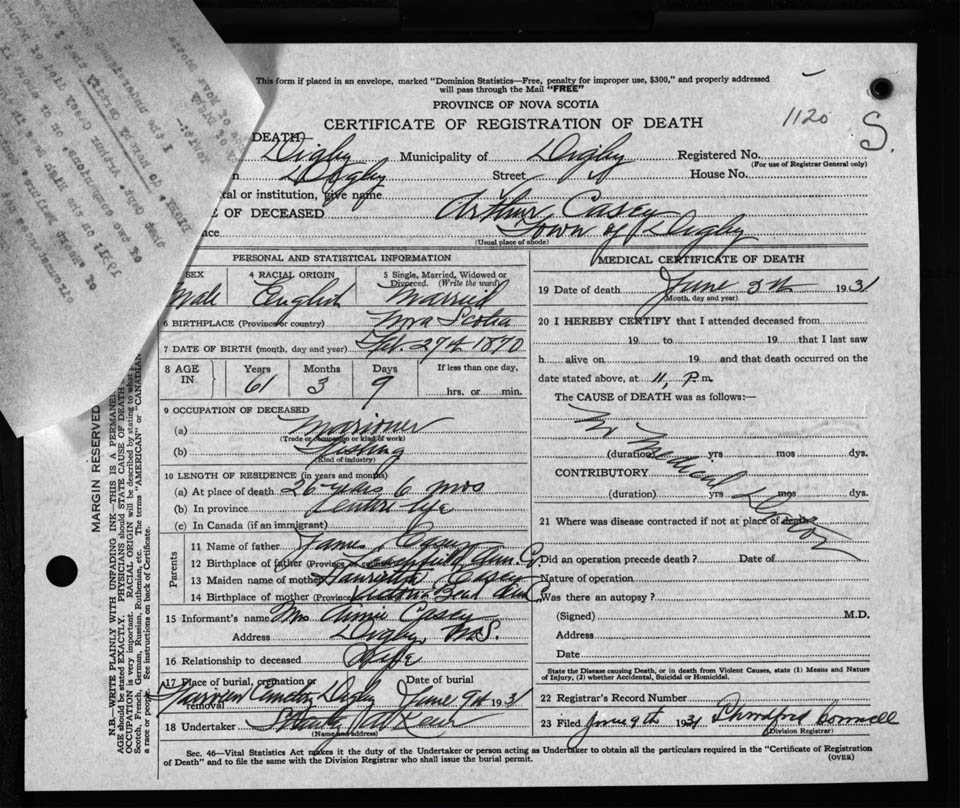 This form if placed in an envelope, marked "Dominion Statistics—Free, penalty for improper use, $300," and properly addressed
will pass through the Mail "FREE"
PROVINCE OF NOVA SCOTIA
CERTIFICATE OF REGISTRATION OF DEATH
1120 S.
DEATH—
Digby Municipality of Digby Registered No.
(For use of Registrar General only)
Digby Street House No.
tal or institution, give name
E OF DECEASED Arthur Casey
lace Town of Digby
(Usual place of abode)
PERSONAL AND STATISTICAL INFORMATION
SEX 4 RACIAL ORIGIN 5 Single, Married, Widowed or
Divorced. (Write the word)
Male English Married
6 BIRTHPLACE (Province or country) Nova Scotia
7 DATE OF BIRTH (month, day and year) 27th 1870
8 AGE IN Years Months Days If less than one day,
61 3 9 hrs. or min.
9 OCCUPATION OF DECEASED
(a) Marioner
(Trade or occupation or kind of work)
(b) Fishing
(Kind of industry)
10 LENGTH OF RESIDENCE (in years and months)
(a) At place of death 26 years 6 mos
(b) In province
(c) In Canada (if an immigrant)
Parents
11 Name of father James Casey
12 Birthplace of father (Province or country)
13 Maiden name of mother Casey
14 Birthplace of mother (Province
15 Informant's name Mrs Casey
Address Digby, N.S.
16 Relationship to deceased Wife
17 Place of burial, cremation or removal Date of burial
Digby June 9th 1931
18 Undertaker
(Name and address)
MEDICAL CERTIFICATE OF DEATH
19 Date of death June 5th 1931
(Month, day and year)
20 I HEREBY CERTIFY that I attended deceased from
19 to 19 that I last saw
h alive on 19 and that death occurred on the
date stated above, at 11, P.m.
The CAUSE of DEATH was as follows:—
No Medical Doctor
(duration) yrs mos dys.
CONTRIBUTORY
(duration) yrs mos dys.
21 Where was disease contracted if not at place of death?
Did an operation precede death? Date of
Nature of operation
Was there an autopsy?
(Signed) M.D.
Address
Date
State the Disease causing Death, or in death from Violent Causes, state (1) Means and Nature
of Injury, (2) whether Accidental, Suicidal or Homicidal.
22 Registrar's Record Number
23 Filed June 9th 1931
(Division Registrar)
Sec. 46—Vital Statistics Act makes it the duty of the Undertaker or person acting as Undertaker to obtain all the particulars required in the "Certificate of Registration
of Death" and to file the same with the Division Registrar who shall issue the burial permit.
(OVER)
MARGIN RESERVED
N.B.—WRITE PLAINLY WITH UNFADING INK—THIS IS A PERMANE
AGE should be stated EXACTLY. PHYSICIANS should STATE CAUSE OF DEATH
OCCUPATION is very important. RACIAL ORIGIN will be described by stating to what
Scotch, French, German, Russian, Ruthenian, etc. The terms "AMERICAN" or "CANADIAN
a race or people. See instructions on back of Certificate.